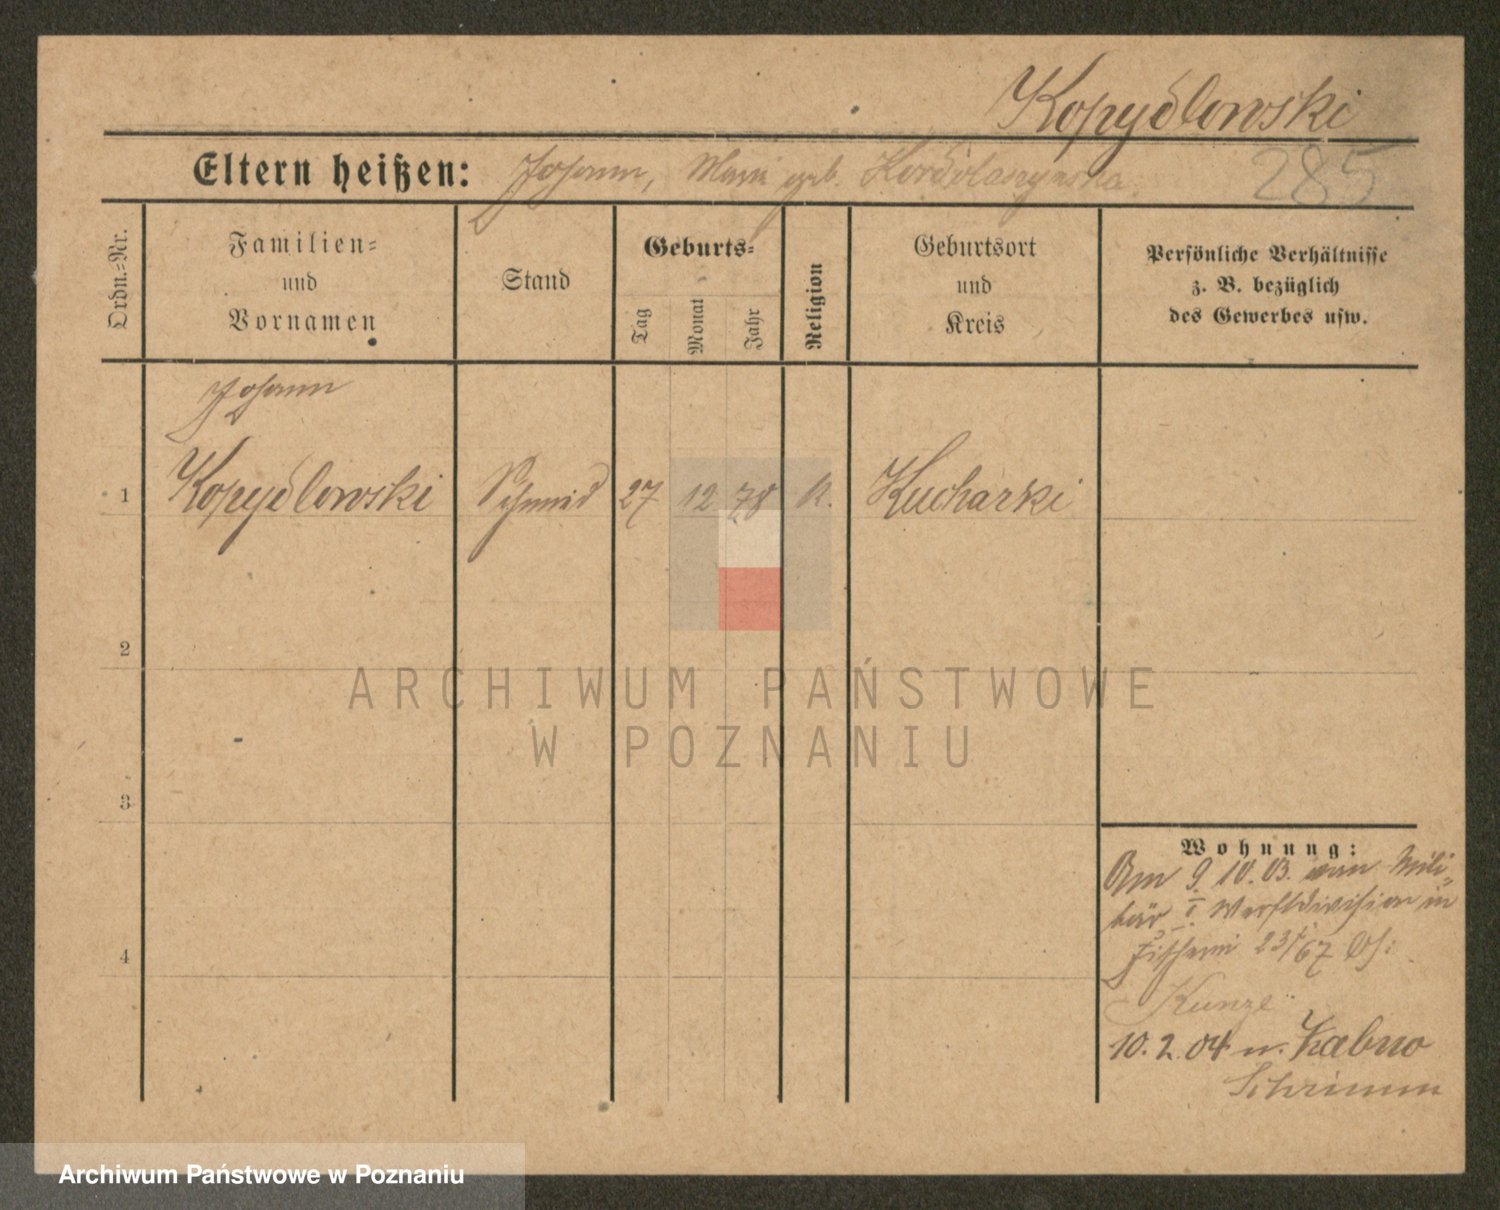 Kopydlowski
Eltern heißen: Johann, Marie geb.
285
Ordn.-Nr.
Familien-
und
Vornamen
Stand
Geburts-
Tag
Monat
Jahr
Religion
Geburtsort
und
Kreis
Persönliche Verhältnisse
z. B. bezüglich
des Gewerbes usw.
Johann
1 Kopydlowski Schmied 27 12 78 K. Kucharki
2
3
4
ARCHIWUM PAŃSTWOWE
W POZNANIU
Wohnung:
Am 9. 10. 03. vom Mili-
tär I. Werftdivision in
23/67
Kunze
10. 2. 04 n. Xiebno
Schrimm
Archiwum Państwowe w Poznaniu